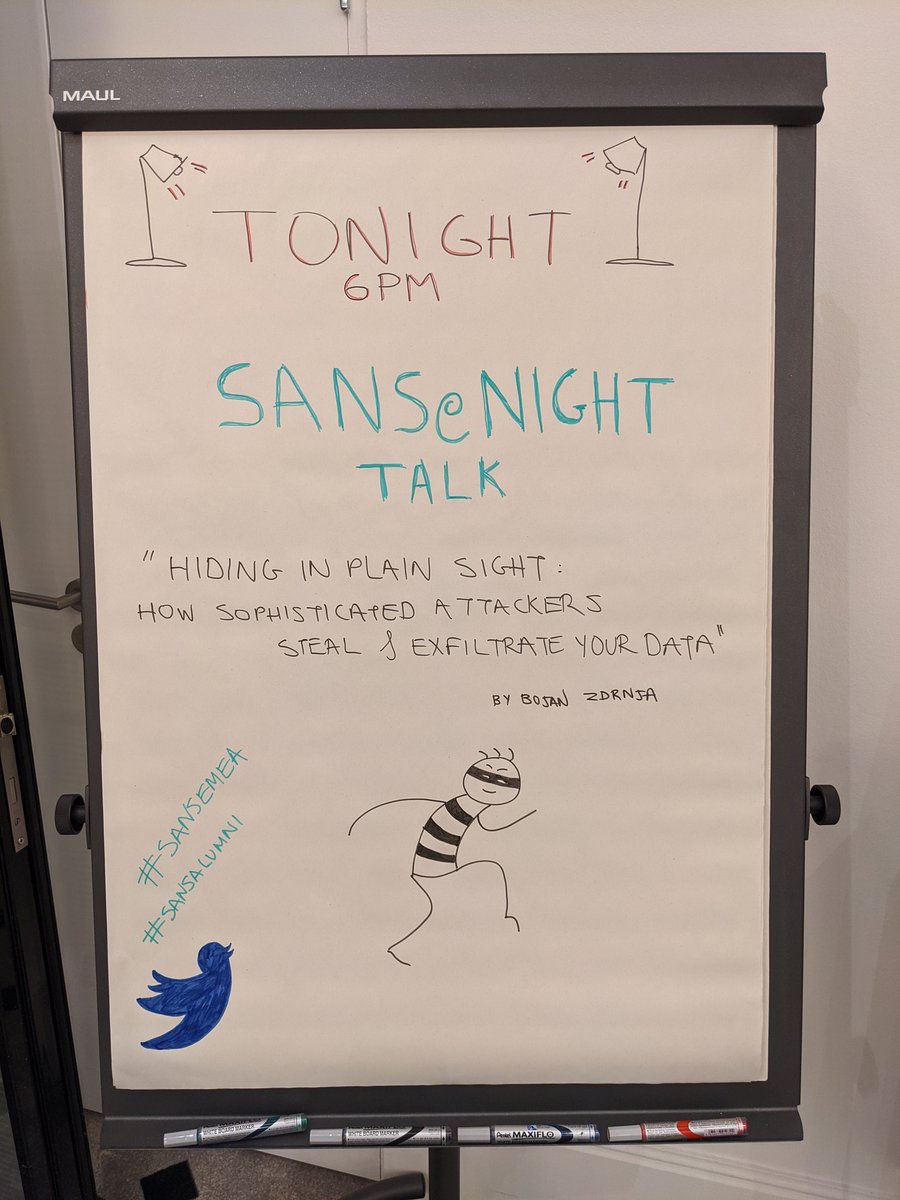 MAUL
TONIGHT
6PM
SANS@NIGHT
TALK
"HIDING IN PLAIN SIGHT:
HOW SOPHISTICATED ATTACKERS
STEAL & EXFILTRATE YOUR DATA"
BY BOJAN ZDRNJA
#SANSEMEA
#SANSALUMNI
WHITE BOARD MARKER
WHITE BOARD MARKER
Pentel MAXIFLO